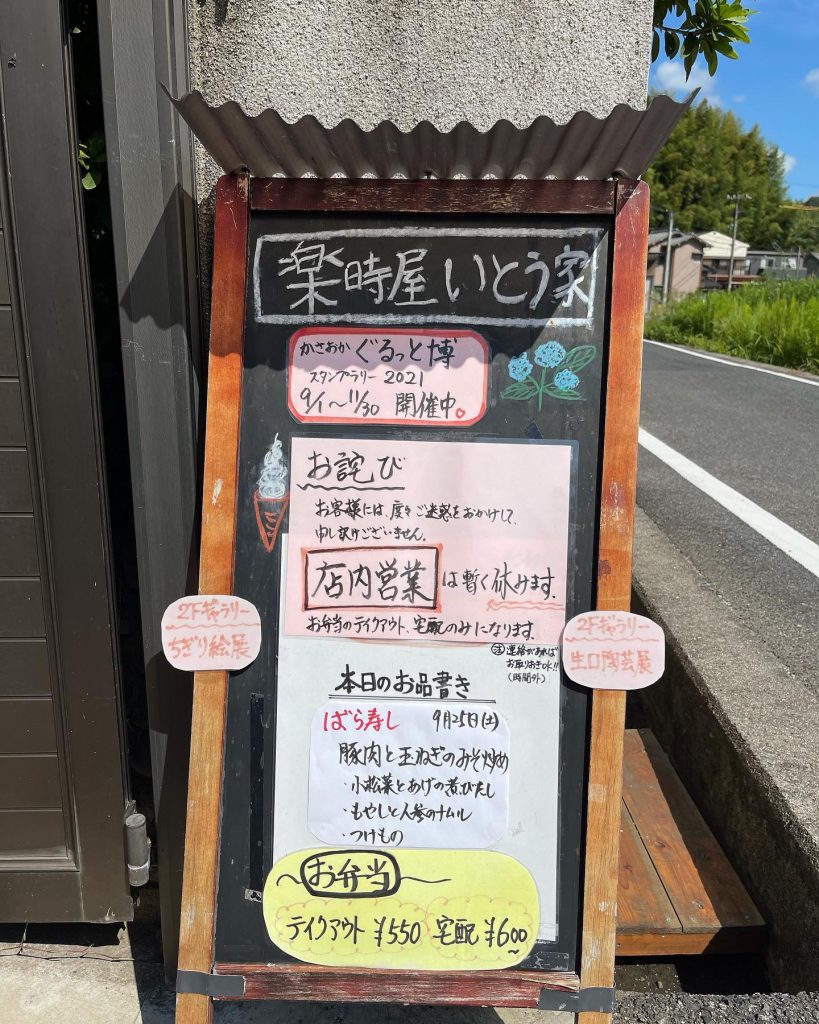 楽時屋いとう家
かさおか ぐるっと博
スタンプラリー 2021
9/1〜11/30 開催中。
お詫び
お客様には、度々ご迷惑をおかけして、
申し訳けございません。
店内営業は暫く休みます。
お弁当のテイクアウト、宅配のみになります。
注 連絡があれば
お取りおきok!!
(時間外)
2Fギャラリー
ちぎり絵展
2Fギャラリー
生口陶芸展
本日のお品書き
ばら寿し 9月25日(土)
豚肉と玉ねぎのみそ炒め
・小松菜とあげの煮びたし
・もやしと人参のナムル
・つけもの
〜お弁当〜
テイクアウト ¥550 宅配 ¥600